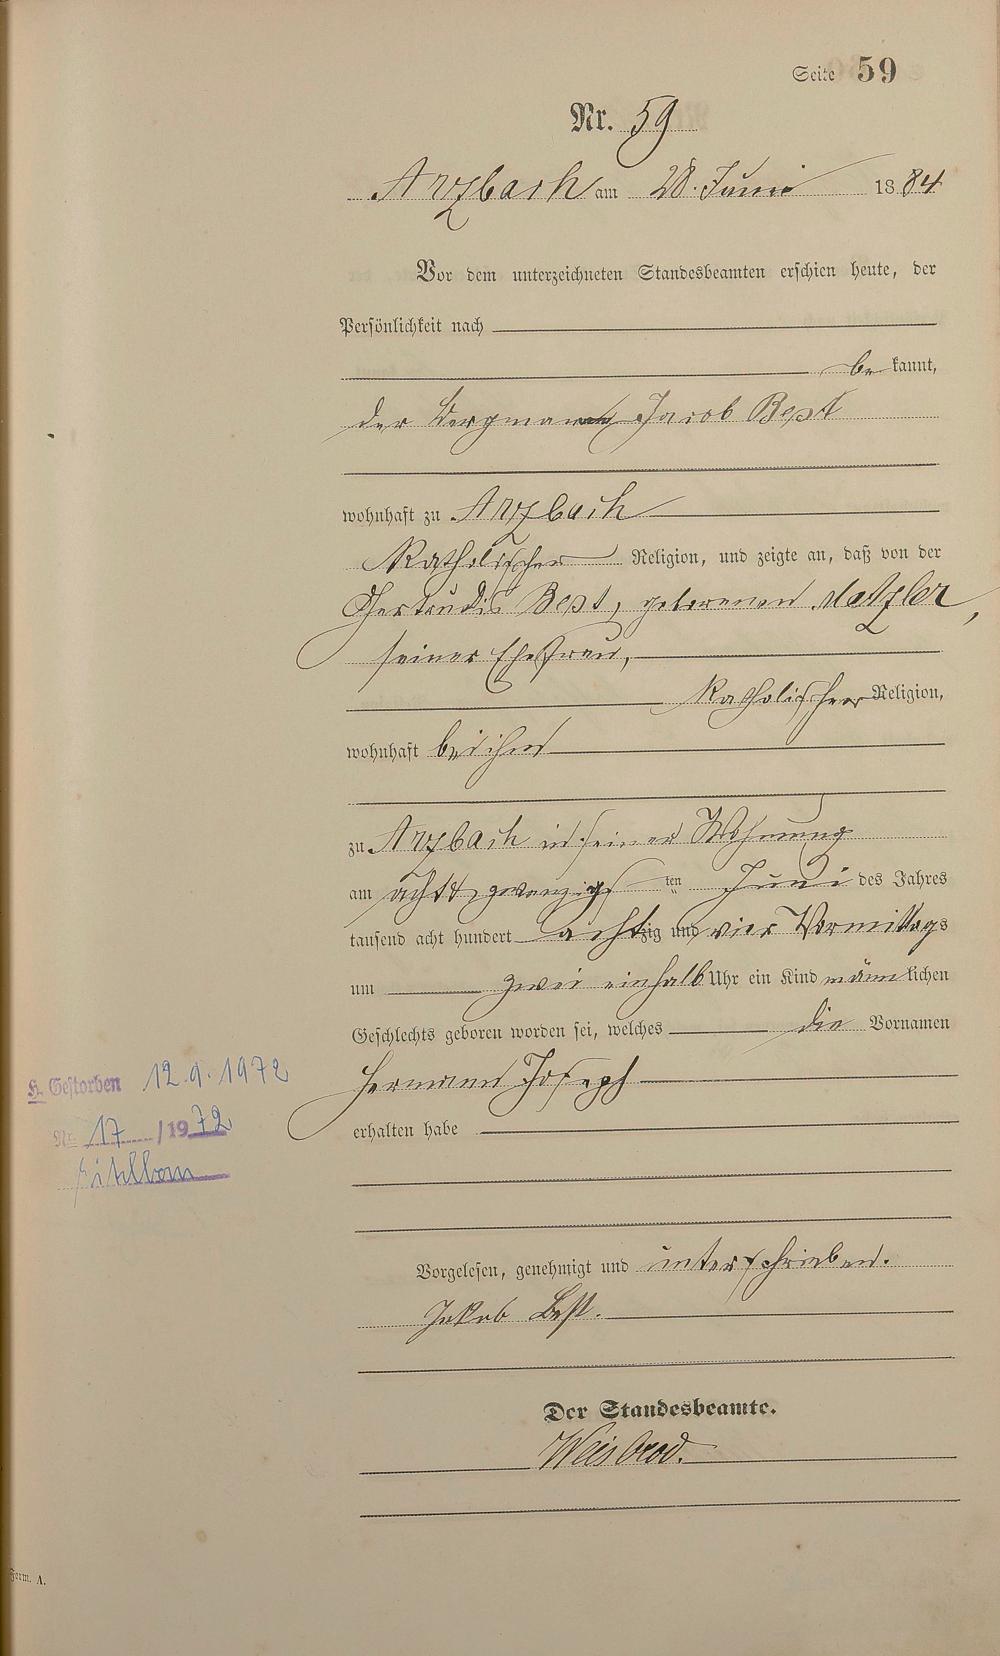 Seite 59
Nr. 59
Arzbach am 28. Juni 1884
Vor dem unterzeichneten Standesbeamten erschien heute, der
Persönlichkeit nach
bekannt,
der Bergmann Jacob Best
wohnhaft zu Arzbach
Katholischer Religion, und zeigte an, daß von der
Gertrudis Best, geborenen Metzler,
seiner Ehefrau,
Katholischer Religion,
wohnhaft bei ihm
zu Arzbach in seiner Wohnung
am acht zwanzigsten Juni des Jahres
tausend acht hundert achtzig und vier Vormittags
um zwei einhalb Uhr ein Kind männlichen
Geschlechts geboren worden sei, welches die Vornamen
Hermann Joseph
erhalten habe
H. Gestorben 12.9.1972
Nr. 17 /1972
Vorgelesen, genehmigt und unterschrieben.
Jakob Best.
Der Standesbeamte.
Weisbrod.
Form. A.